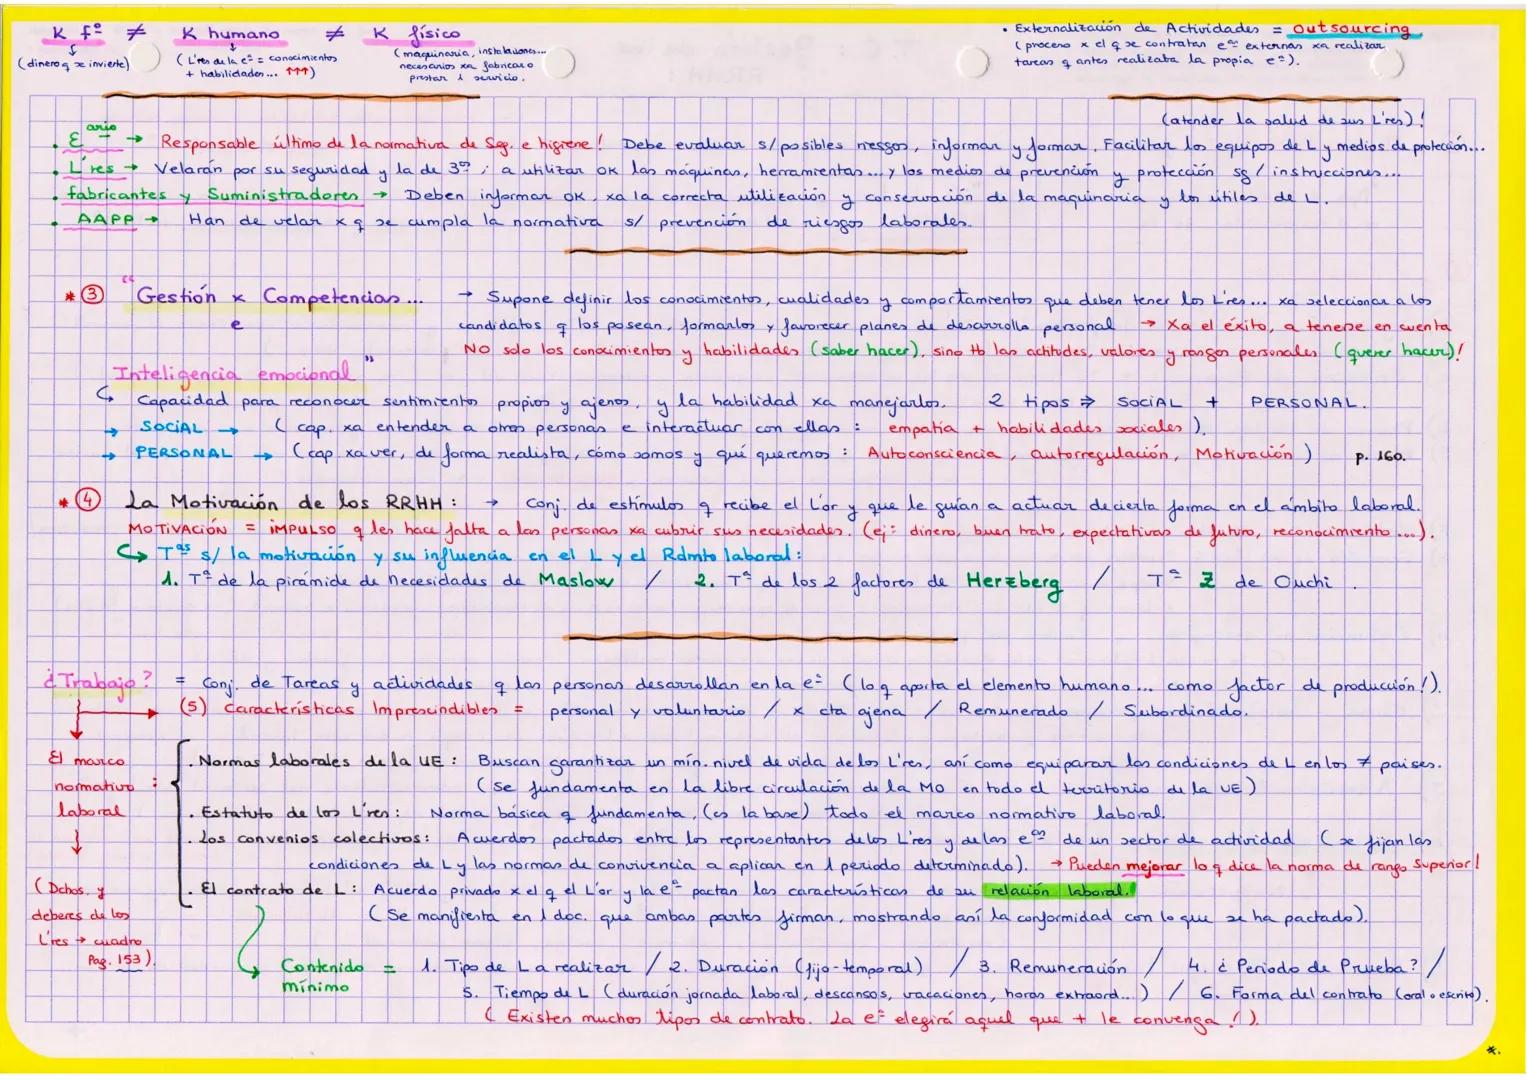 K fº ≠ K humano ≠ K físico
(dinero q se invierte)
(L'res de la eª = conocimientos
+ habilidades... ↑↑↑)
(maquinaria, instalaciones...
necesarios xa fabricar o
prestar 1 servicio.
• Externalización de Actividades = outsourcing
(proceso x el q se contratan eªs externas xa realizar
tareas q antes realizaba la propia eª).
(atender la salud de sus L'res)!
• Eario → Responsable último de la normativa de Seg. e higiene! Debe evaluar s/ posibles riesgos, informar y formar. Facilitar los equipos de L y medios de protección...
• L'res → Velarán por su seguridad y la de 3os ; a utilizar OK las máquinas, herramientas... y los medios de prevención y protección sg/ instrucciones...
• fabricantes y Suministradores → Deben informar OK, xa la correcta utilización y conservación de la maquinaria y los útiles de L.
• AAPP → Han de velar x q se cumpla la normativa s/ prevención de riesgos laborales.
* ③ "Gestión x Competencias... → Supone definir los conocimientos, cualidades y comportamientos que deben tener los L'res... xa seleccionar a los
e candidatos q los posean, formarlos y favorecer planes de desarrollo personal → Xa el éxito, a tenerse en cuenta
NO solo los conocimientos y habilidades (saber hacer), sino tb las actitudes, valores y rasgos personales (querer hacer)!
Inteligencia emocional"
↳ Capacidad para reconocer sentimientos propios y ajenos, y la habilidad xa manejarlos. 2 tipos ⇒ SOCIAL + PERSONAL.
→ SOCIAL → (cap. xa entender a otras personas e interactuar con ellas : empatía + habilidades sociales).
→ PERSONAL → (cap. xa ver, de forma realista, cómo somos y qué queremos : Autoconsciencia, autorregulación, Motivación) p. 160.
* ④ La Motivación de los RRHH : → Conj. de estímulos q recibe el L'or y que le guían a actuar de cierta forma en el ámbito laboral.
MOTIVACIÓN = IMPULSO q les hace falta a las personas xa cubrir sus necesidades. (ej: dinero, buen trato, expectativas de futuro, reconocimiento...).
↳ Tªs s/ la motivación y su influencia en el L y el Rdmto laboral:
1. Tª de la pirámide de necesidades de Maslow / 2. Tª de los 2 factores de Herzberg / Tª Z de Ouchi.
¿Trabajo? = Conj. de Tareas y actividades q las personas desarrollan en la eª (lo q aporta el elemento humano... como factor de producción!).
→ (5) Características Imprescindibles = personal y voluntario / x cta ajena / Remunerado / Subordinado.
El marco
normativo :
laboral
↓
(Dchos. y
deberes de los
L'res → cuadro
Pag. 153).
• Normas laborales de la UE : Buscan garantizar un mín. nivel de vida de los L'res, así como equiparar las condiciones de L en los ≠ países.
(Se fundamenta en la libre circulación de la MO en todo el territorio de la UE)
• Estatuto de los L'res : Norma básica q fundamenta, (es la base) todo el marco normativo laboral.
• Los convenios colectivos : Acuerdos pactados entre los representantes de los L'res y de las eªs de un sector de actividad (se fijan las
condiciones de L y las normas de convivencia a aplicar en 1 periodo determinado). → Pueden mejorar lo q dice la norma de rango Superior!
• El contrato de L : Acuerdo privado x el q el L'or y la eª pactan las características de su relación laboral.
(Se manifiesta en 1 doc. que ambas partes firman, mostrando así la conformidad con lo que se ha pactado).
Contenido = 1. Tipo de L a realizar / 2. Duración (fijo-temporal) / 3. Remuneración / 4. ¿Periodo de Prueba? /
mínimo 5. Tiempo de L (duración jornada laboral, descansos, vacaciones, horas extraord...) / 6. Forma del contrato (oral o escrito).
(Existen muchos tipos de contrato. La eª elegirá aquel que + le convenga!).
*.